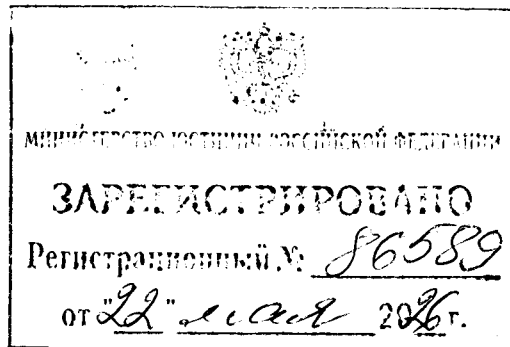 МИНИСТЕРСТВО ЮСТИЦИИ РОССИЙСКОЙ ФЕДЕРАЦИИ
ЗАРЕГИСТРИРОВАНО
Регистрационный № 86589
от "22" мая 2026 г.